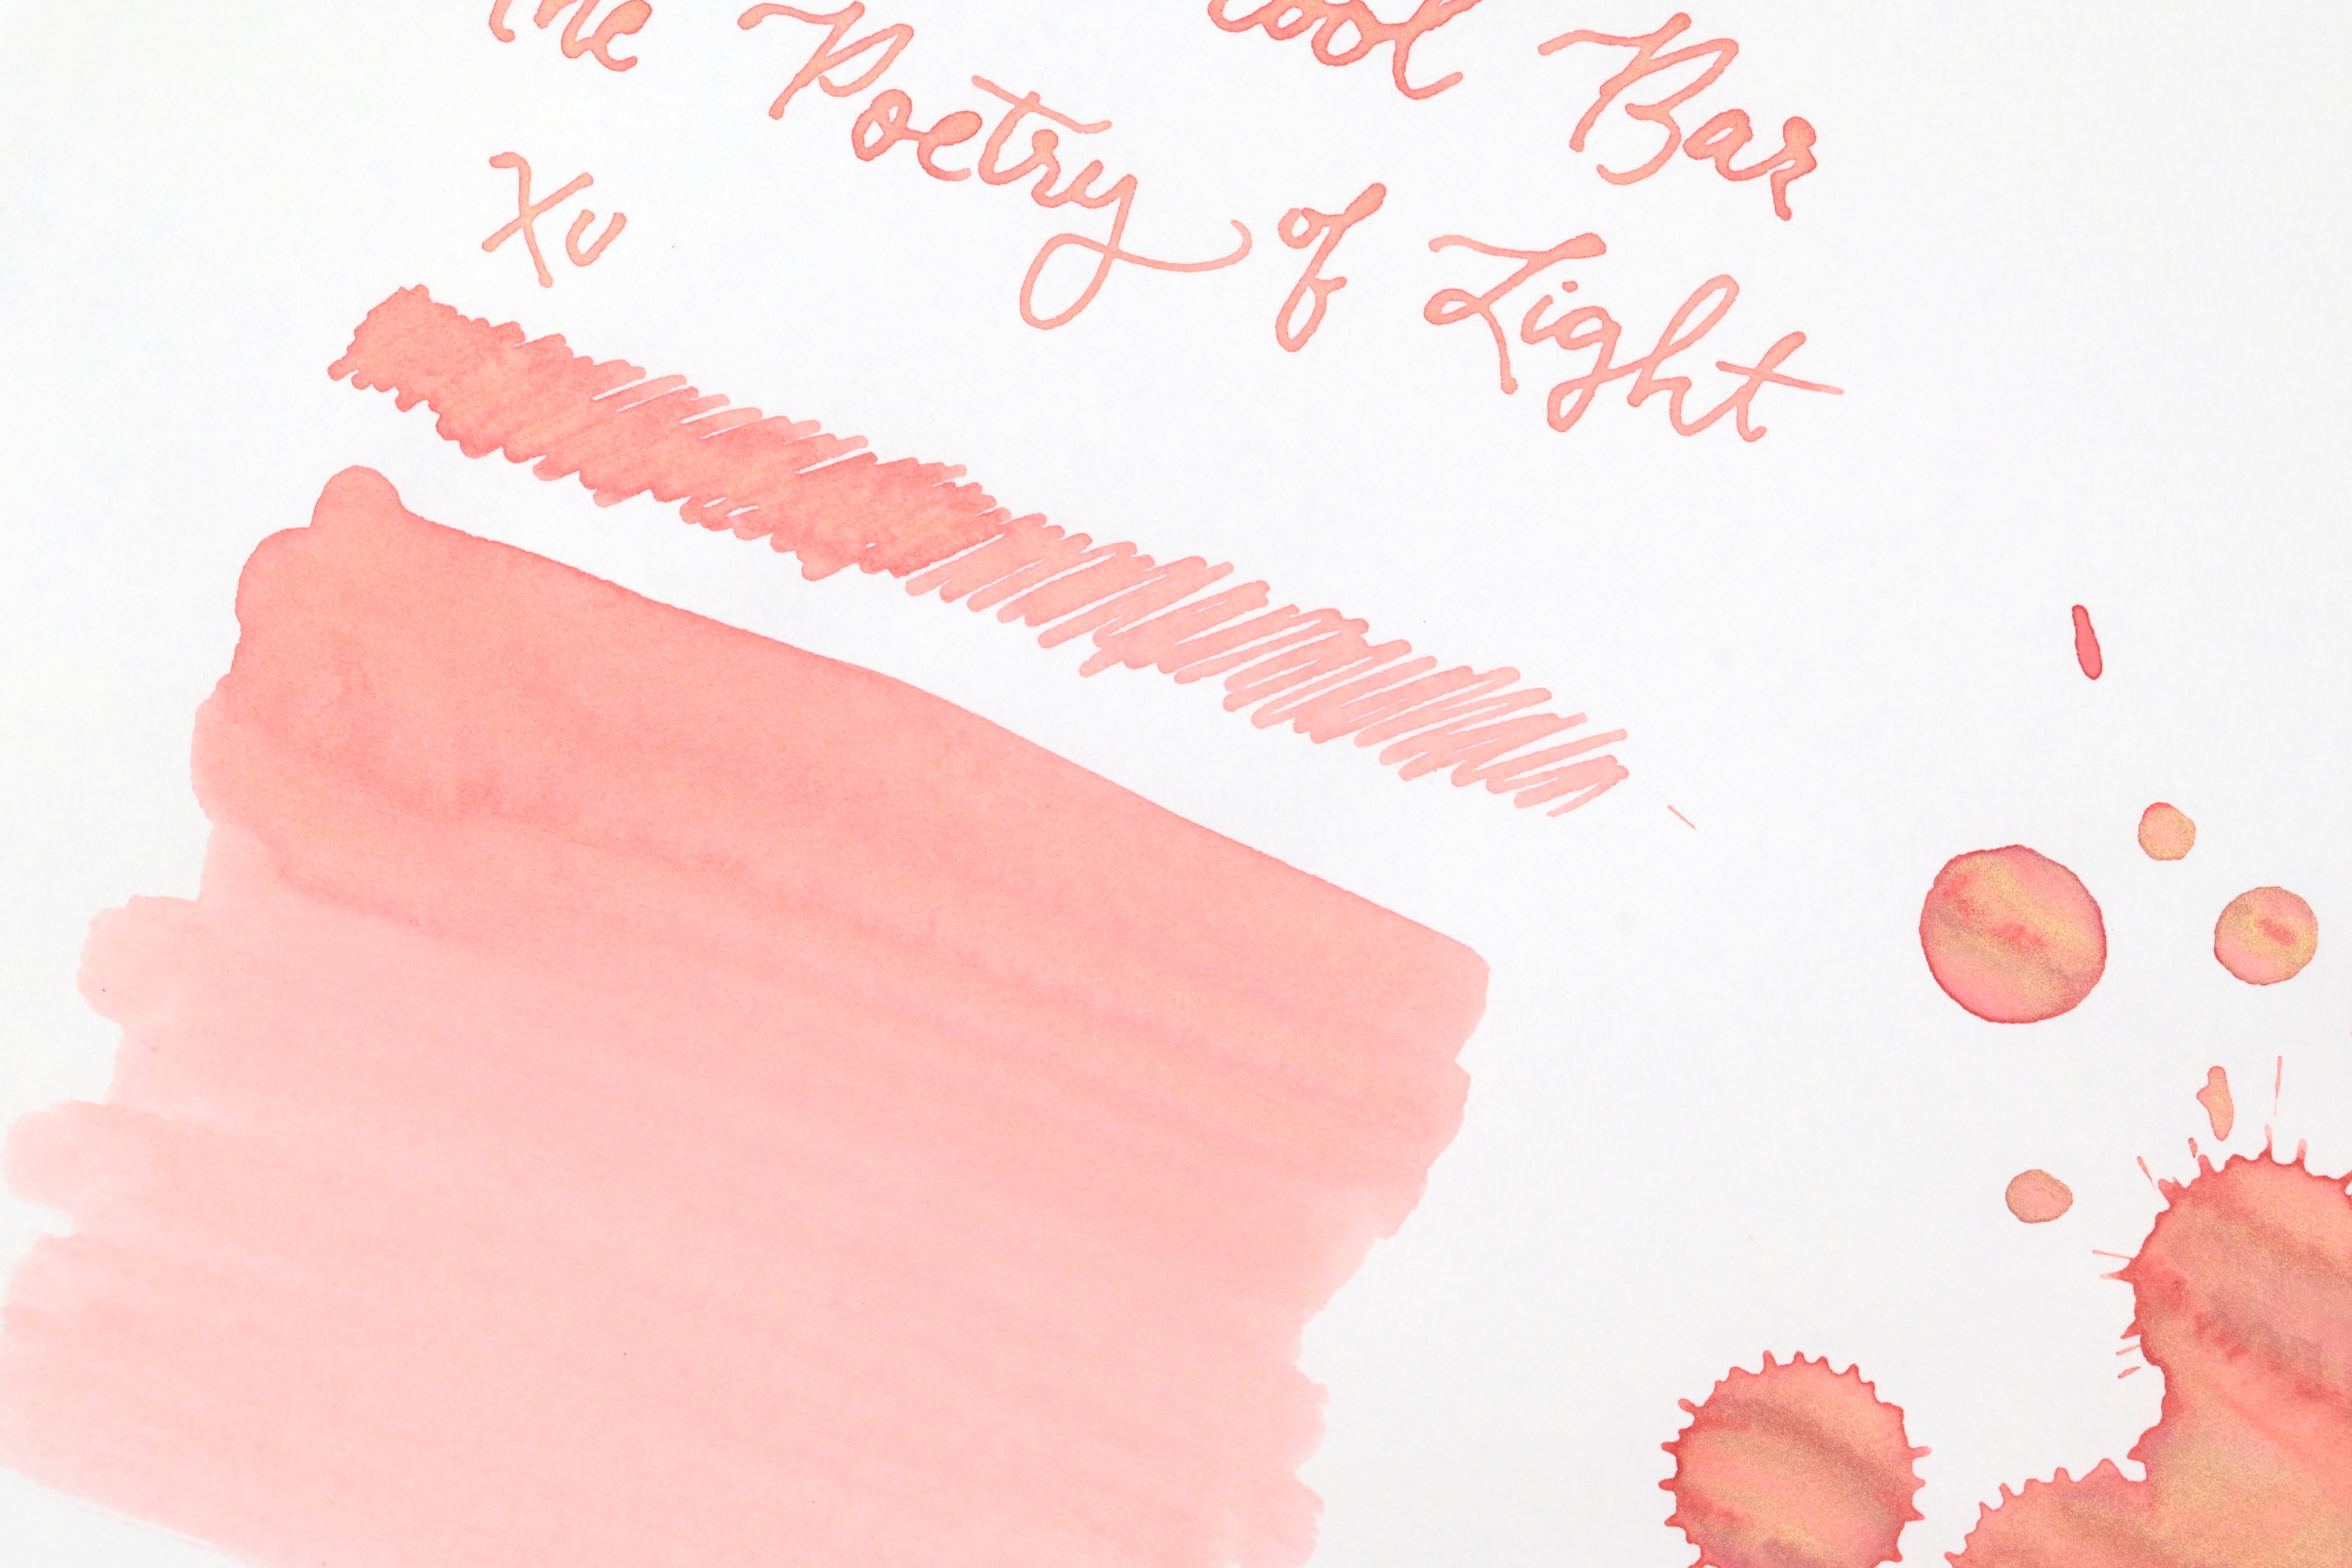 Bar
The Poetry of Light
Xu